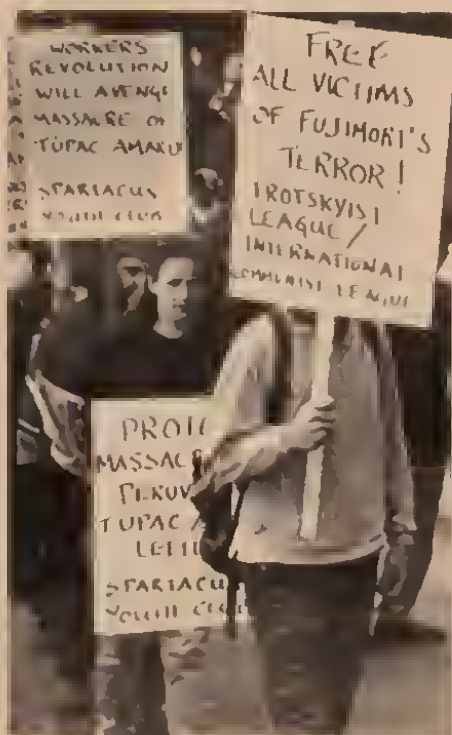 WORKERS
REVOLUTION
WILL AVENGE
MASSACRE OF
TUPAC AMARU
SPARTACUS
YOUTH CLUB
FREE
ALL VICTIMS
OF FUJIMORI'S
TERROR!
TROTSKYIST
LEAGUE/
INTERNATIONAL
COMMUNIST LEAGUE
PROTE
MASSACR
PERUV
TUPAC A
LEFTI
SPARTACUS
YOUTH CLUB